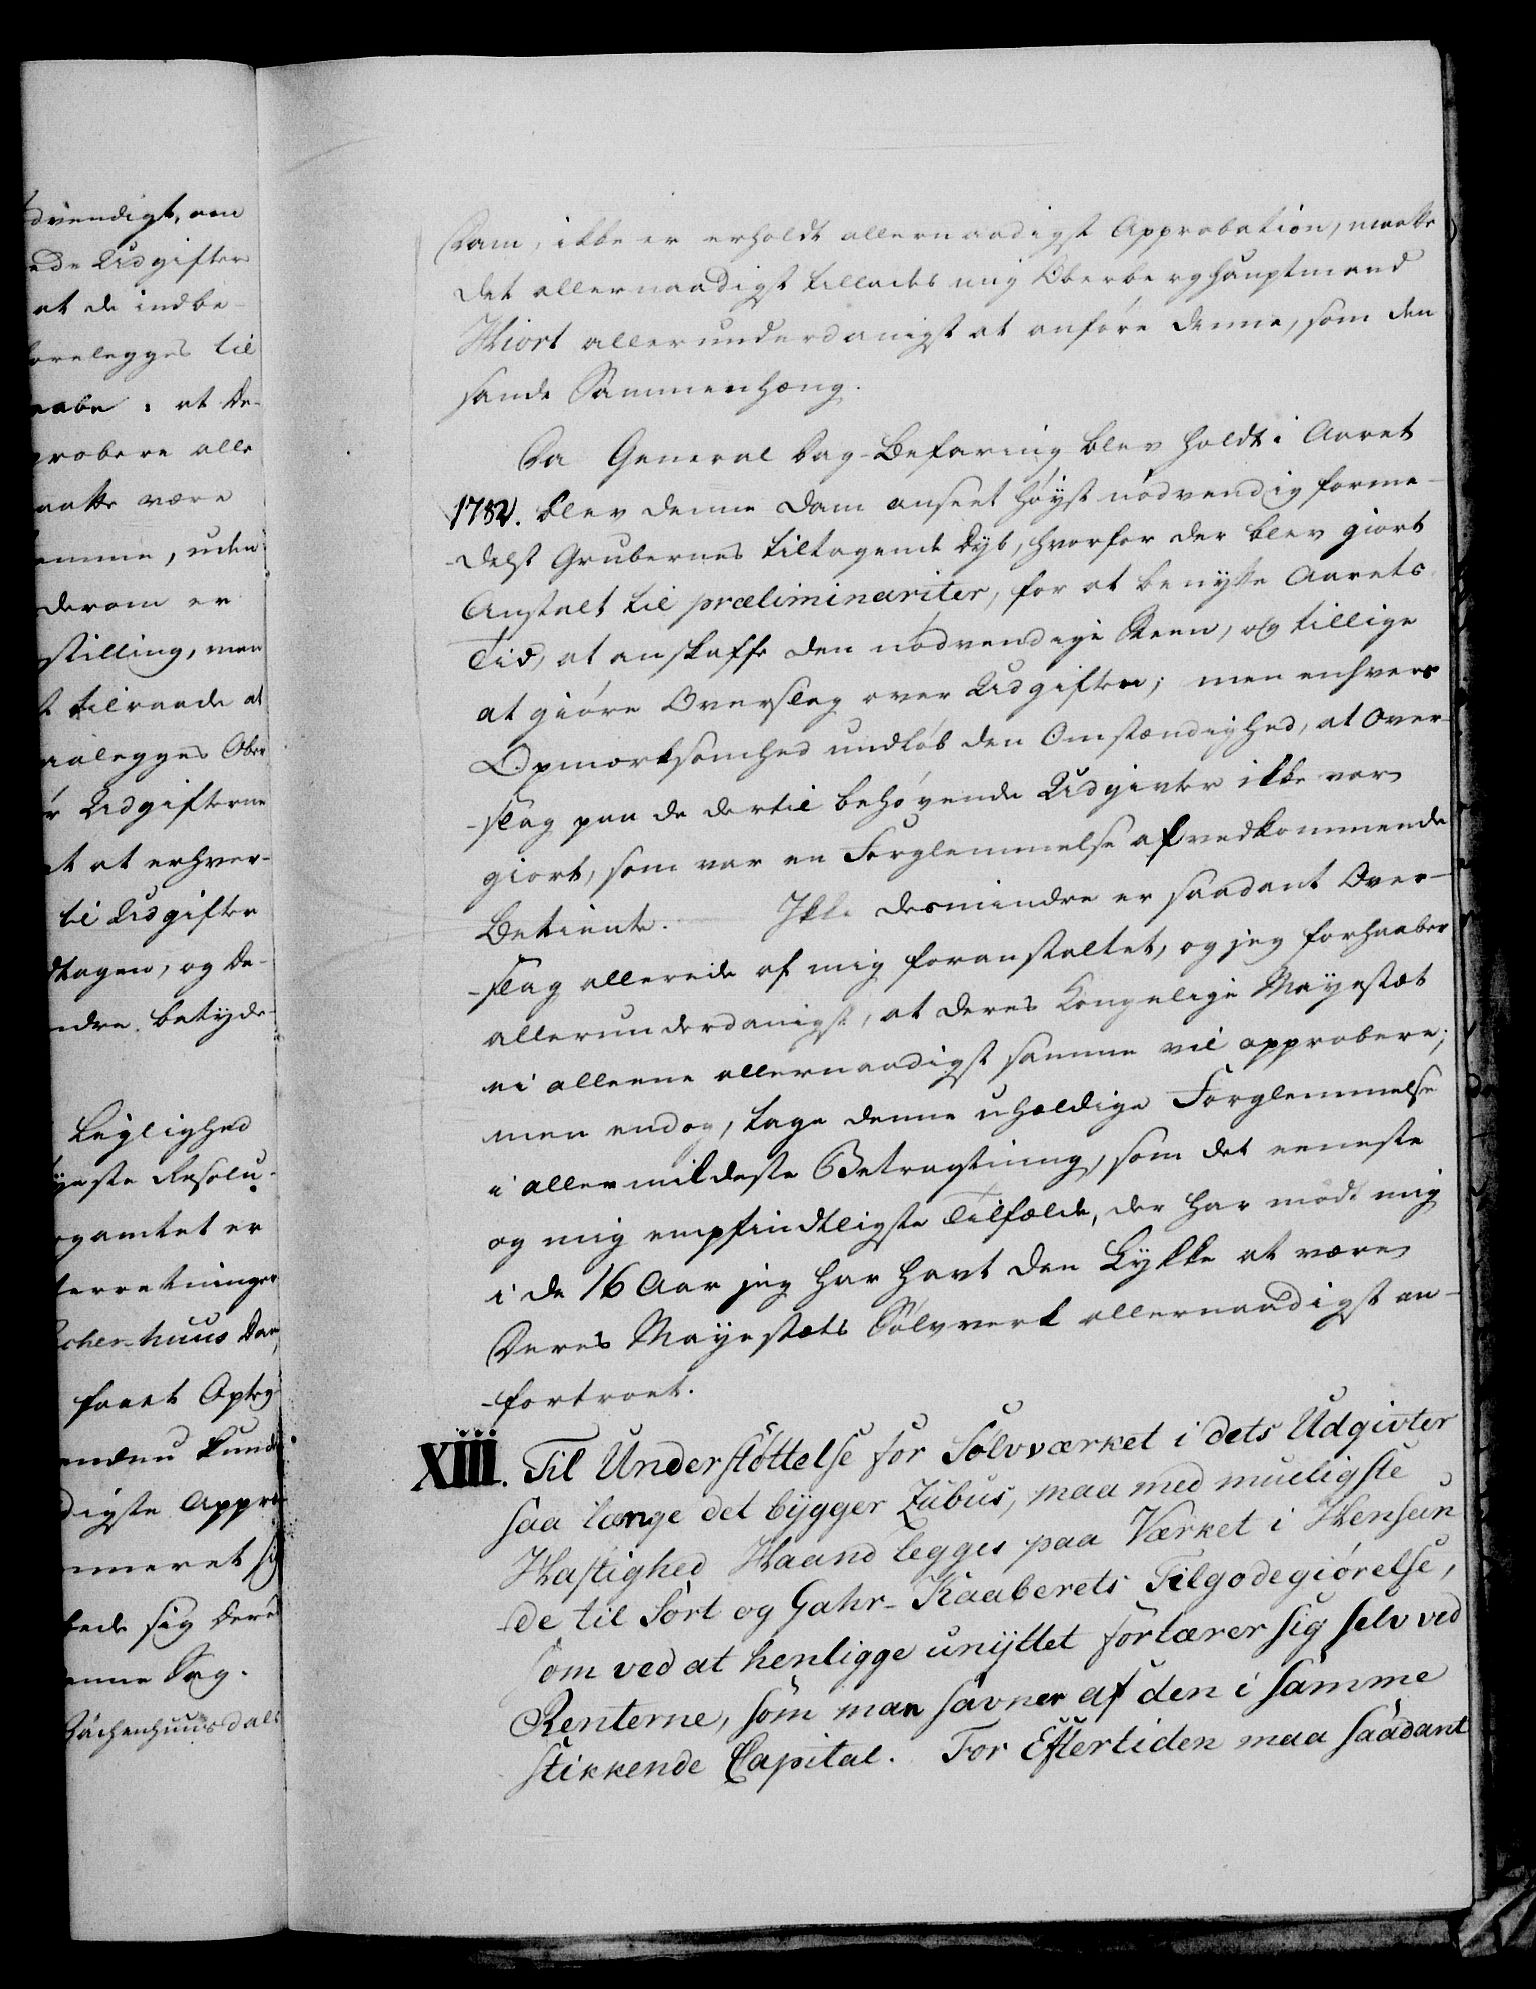 dvendigt, om
ede Udgifter
at de indbe-
orelegges til
aabe, at De-
probere alle
aatte være
emme, uden
derom er
stilling, men
t tilraade at
aalegges Ober
r Udgifterne
t at erhver-
ti Udgifter
dtagen, og De-
ndre betyde-
Leylighed
yeste Resolu-
rgamtet er
terretninger
cher-huus Dam,
faaet Opteg
endnu kunde
digste Appro
nneret si
bede sig Der
enne Sag.
Råchenhuusdals
Dam, ikke er erholdt allernaadigst Approbation, maatte
det allernaadigst tillades mig Oberberghauptmand
Hiort allerunderdanigst at anføre denne, som den
sande Sammenhæng.
Da General Dag-Befaring blev holdt i Aaret
1782. blev denne Dam anseet høyst nødvendig forme-
-delst Grubernes tiltagende Dyb, hvorfor der blev giort
Anstalt til præliminariter, for at benytte Aarets
Tid, at anskaffe den nødvendige Steen, og tillige
at giøre Overslag over Udgiften; men enhvers
Opmærksomhed undløb den Omstændighed, at Over-
-slag paa de dertil behøvende Udgivter ikke var
giort, som var en Forglemmelse af vedkommende
Betiente. Ikke desmindre er saadant Over-
-slag allerede af mig foranstaltet, og jeg forhaaber
allerunderdanigst, at Deres Kongelige Mayestæt
ei alleene allernaadigst samme vil approbere;
men endog, tage denne uheldige Forglemmelse
i allermildeste Betragtning, som det eeneste
og mig empfindtligste Tilfælde, der har mødt mig
i de 16 Aar jeg har havt den Lykke at være
Deres Mayestæts Sølvverk allernaadigst an-
-fortroet.
XIII. Til Understøttelse for Sølvværket i dets Udgivter
saa længe det bygger Zubus, maa med mueligste
Hastighed Haand legges paa Værket i Hensun
-de til Sort og Gahr-Kaaberets Tilgodegiørelse,
som ved at henligge unÿttet fortærer sig selv ved
Renterne, som man savner af den i samme
stikkende Capital. For Eftertiden maa saadant